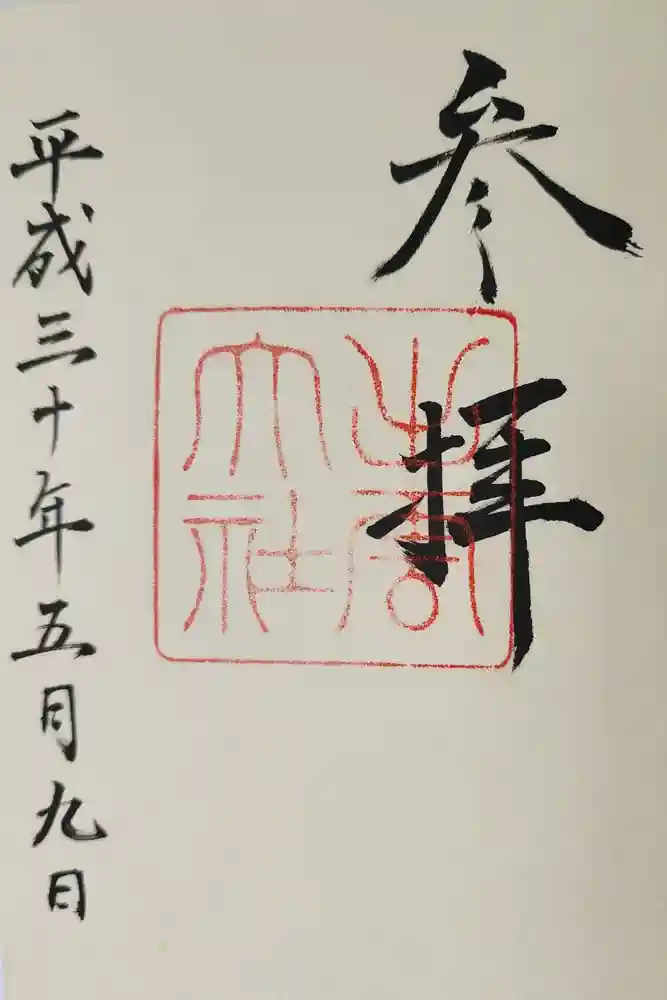 参拝
出雲
大社
平成三十年五月九日